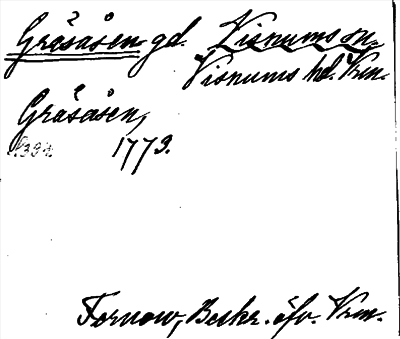 Gräsåsen gd. Visnums sn.
Visnums hd. Vrm.
Gräsåsen,
1779.
Fernow, Beskr. öfv. Vrm.